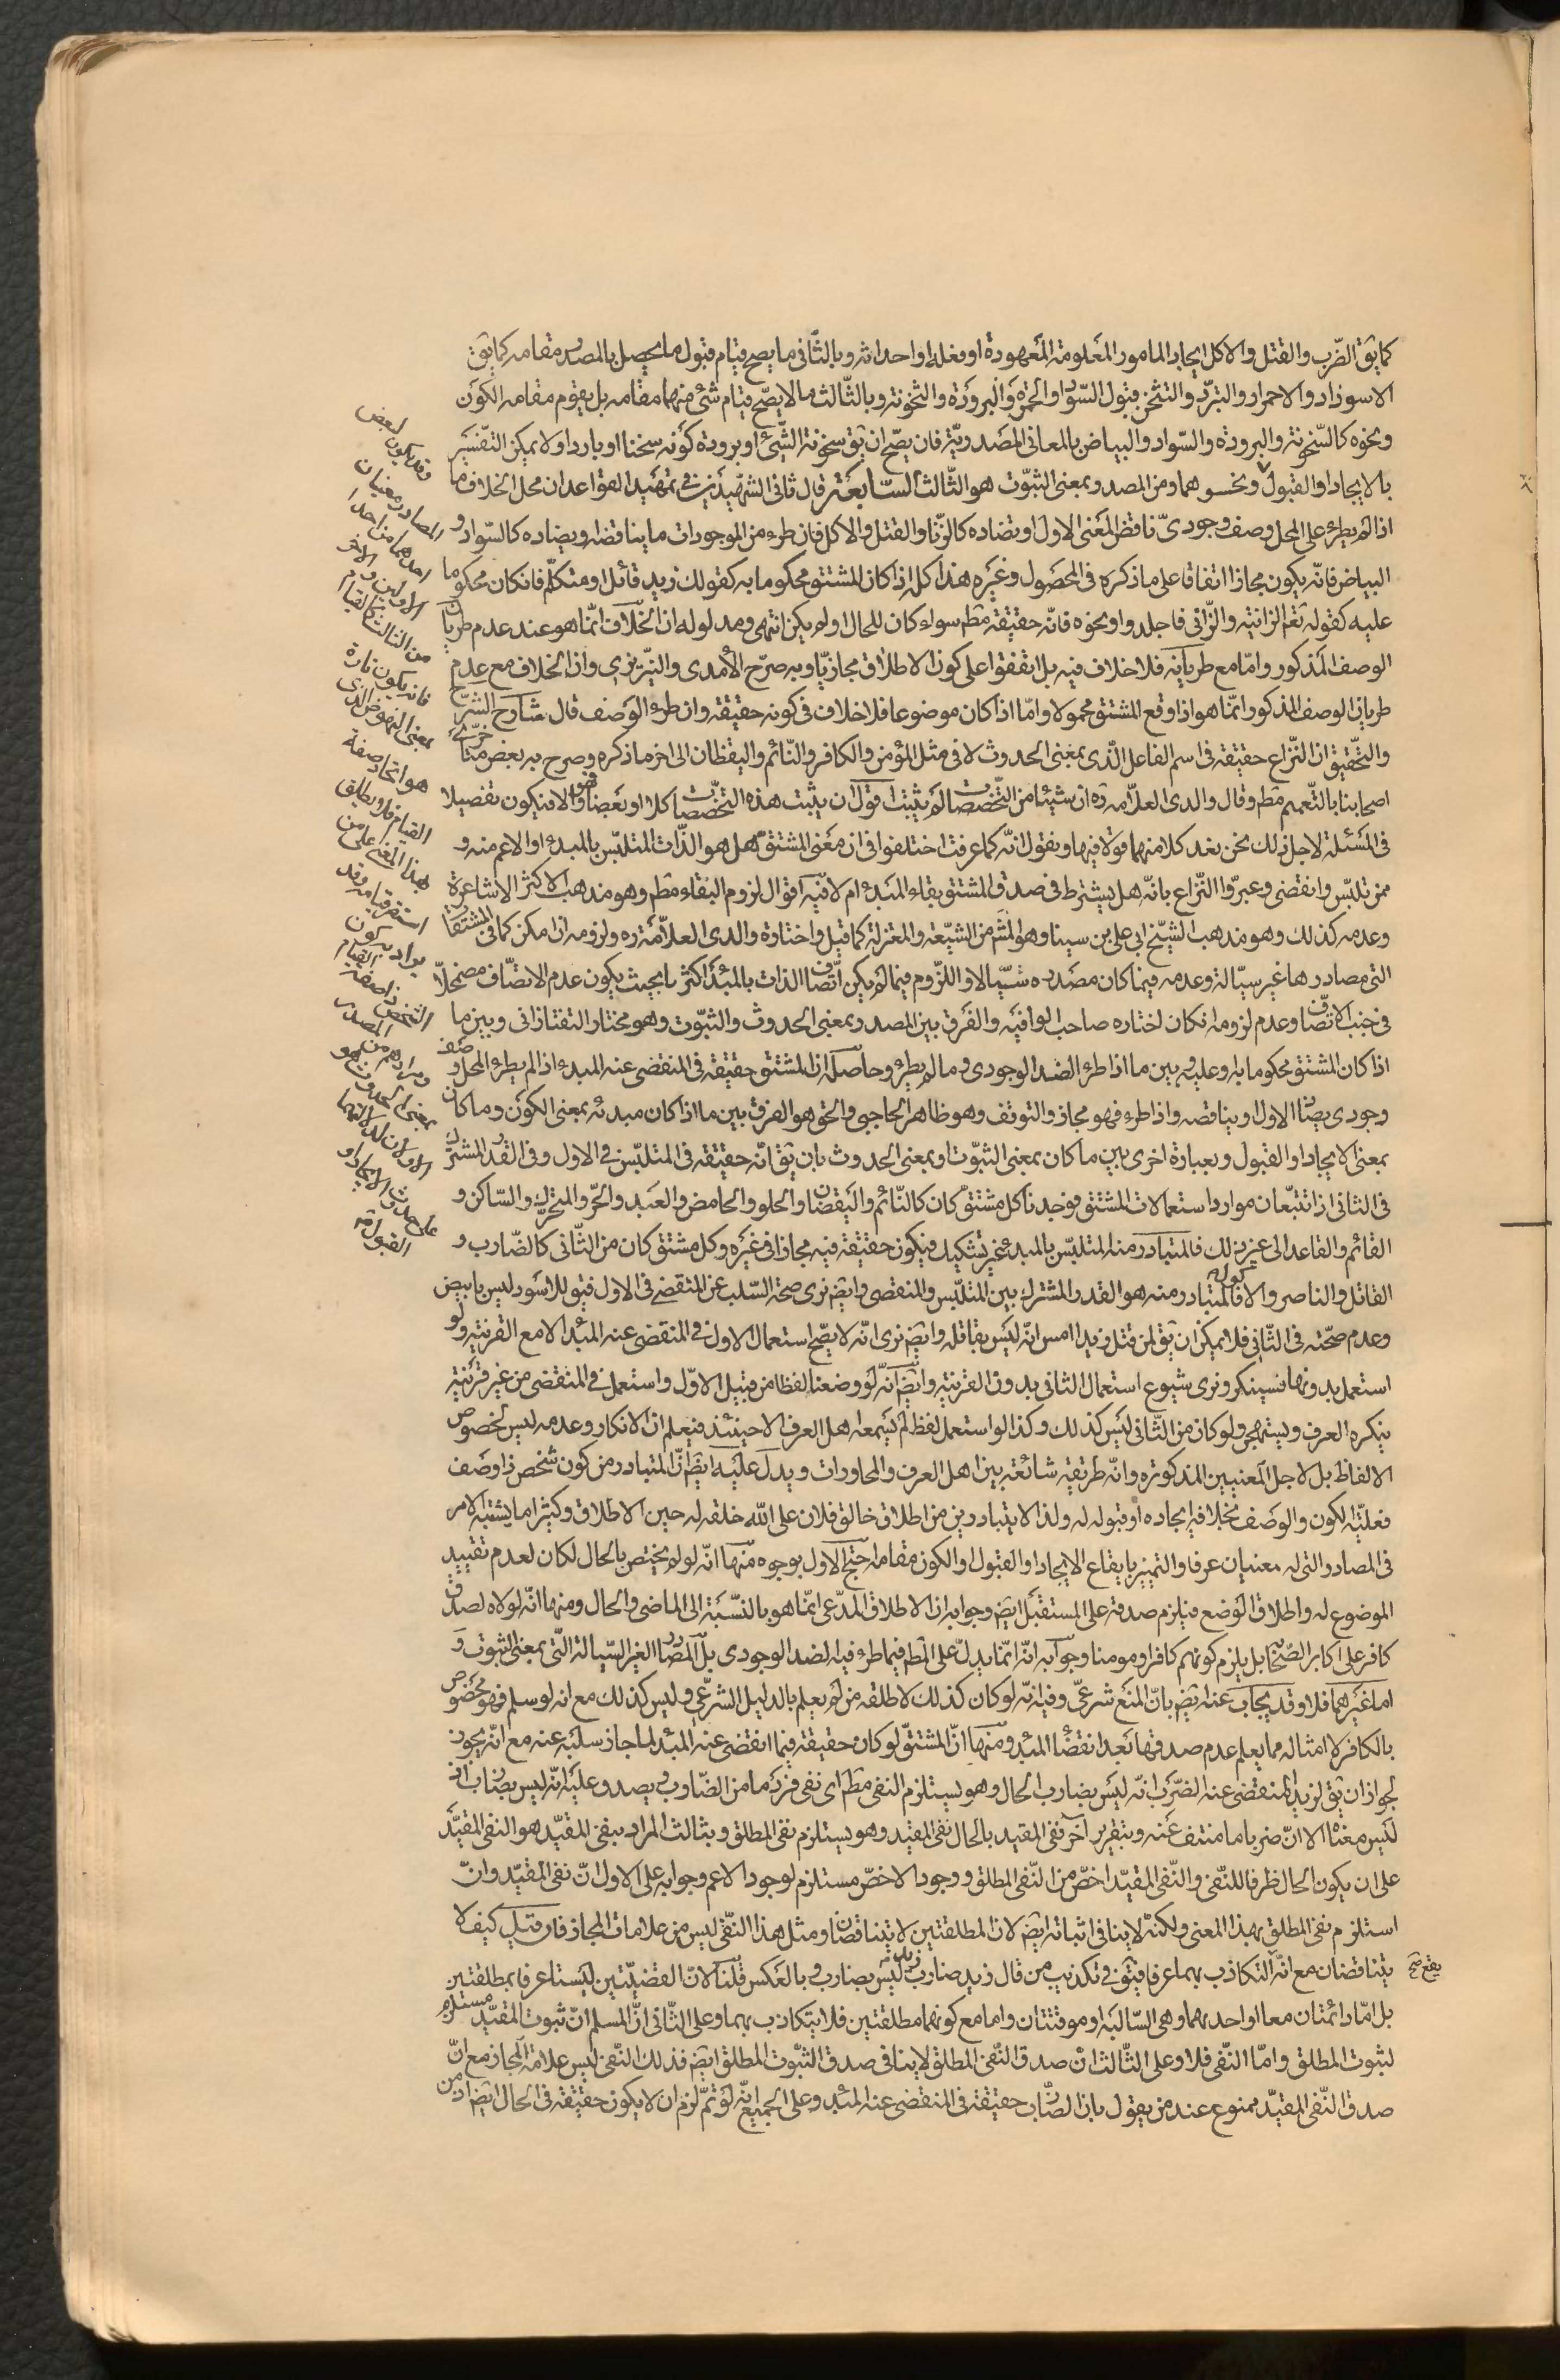 كمايق الضّرب والقتل والاكل ايجاد المامور المعلومة المعهودة او فعلها او احداثه وبالثّانى ما يصح قيام قبول ما يحصل بالمصدر مقامه كما يق
الاسوداد والاحمرار والتبرّد والتسخّن قبول السّواد والحمرة والبرودة والسّخونة وبالثّالث ما لا يصحّ قيام شئ منهما مقامه بل يقوم مقامه الكون
ونحوه كالسّخونة والبرودة والسّواد والبياض بالمعانى المصدريّة فان يصحّ ان يق سخونة الشّئ او برودة كونه سخنا او باردا ولا يمكن التفسير
بالايجاد او القبول ونحوهما ومن المصدر بمعنى الثبوت هو الثّالث السّابعة قال ثانى الشهيدين فى تمهيد القواعد ان محل الخلاف ما
اذا لم يطرء على المحل وصف وجودىّ يناقض المعنى الاول او تضاده كالزّنا والقتل والاكل فان طرء من الموجودات ما يناقضه ويضاده كالسّواد و
البياض فانّه يكون مجازا اتفاقا على ما ذكره فى المحصول وغيره هذا كله اذا كان المشتق محكوما به كقولك زيد قائل او متكلّم فان كان محكوما
عليه كقوله تعم الزانية والزّانى فاجلدوا ونحوه فانّه حقيقة مطم سواء كان للحال او لم يكن انتهى ومدلوله ان الخلاف انّما هو عند عدم طريان
الوصف المذكور وامّا مع طريانه فلا خلاف فيه بل اتفقوا على كون الاطلاق مجازيّا وبه صرّح الآمدى والتبريزى وان الخلاف مع عدم
طريان الوصف المذكور انّما هو اذا وقع المشتق محمولا وامّا اذا كان موضوعا فلا خلاف فى كونه حقيقة وان طرء الوصف قال شارح الشرح
والتّحقيق ان النّزاع حقيقة فى اسم الفاعل الّذى بمعنى الحدوث لا فى مثل المؤمن والكافر والنّائم واليقظان الى اخر ما ذكره وصرح به بعض متاخرى
اصحابنا بالتّعميم مطم وقال والدى العلاّمه ره ان شيئا من التّخصّصات لم يثبت اقول ان يثبت هذه التّخصّصات كلا او بعضا فهو والا فيكون تفصيلا
فى المسئلة لاجل ذلك نحن بعد كلا منهما قولا فيها ونقول انّه كما عرفت اختلفوا فى ان معنى المشتق هل هو الذّات المتلبّس بالمبدء او الاعم منه و
ممن تلبّس وانقضى وعبروا النّزاع بانّه هل يشترط فى صدق المشتق بقاء المبدء ام لا فيه اقوال لزوم البقاء مطم وهو مذهب اكثر الاشاعرة
وعدمه كذلك وهو مذهب الشيّخ ابى على بن سينا وهو المشم من الشيّعة والمعتزلة كما قيل واختاره والدى العلاّمة ره ولزومه ان امكن كما فى المشتقات
التى مصادرها غير سيّالة وعدمه فيما كان مصدره سيّالا واللزّوم فيما لم يكن اتّصاف الذات بالمبدء اكثريا بحيث يكون عدم الاتصّاف مضمحلاّ
فى جنب الاتّصاف وعدم لزومه ان كان اختاره صاحب الوافيه والفرق بين المصدر بمعنى الحدوث والثبوت وهو مختار التفتازانى وبين ما
اذا كان المشتق محكوما به او عليه وبين ما اذا طرء الضد الوجودى وما لم يطرء وحاصله ان المشتق حقيقة فى المنقضى عنه المبدء اذا لم يطرء المحل وصف
وجودى يضاد الاول او يناقضه واذا طرء فهو مجاز والتوقف وهو ظاهر الحاجبى والحق هو الفرق بين ما اذا كان مبدئه بمعنى الكون وما كان
بمعنى الايجاد او القبول وبعبارة اخرى بين ما كان بمعنى الثبوت او بمعنى الحدوث بان يق انّه حقيقة فى المتلبّس فى الاول وفى القدر المشترك
فى الثانى اذ انا تتبّعنا موارد استعمالات المشتق فوجدنا كل مشتق كان كالنّائم واليقضان والحلو والحامض والعبد والحرّ والمتحرّك والسّاكن و
القائم والقاعد الى غير ذلك فالمتبادر منه المتلبّس بالمبدء غير تشكيك فيكون حقيقة فيه مجازا فى غيره وكل مشتق كان من الثّانى كالضّارب و
القاتل والناصر والاكول فالمتبادر منه هو القدر المشترك بين المتلبّس والمنقضى وايضم نرى صحة السّلب عن المنقضى فى الاول فيق للاسود ليس بابيض
وعدم صحّته فى الثّانى فلا يمكن ان يق لمن قتل زيدا امس انّه ليس بقاتله وايضم نرى انّه لا يصحّ استعمال الاول فى المنقضى عنه المبدء الا مع القرينة ولو
استعمل بدونها فيستنكر ونرى شيوع استعمال الثانى بدون القرينة وايضم انّه لو وضعنا لفظا من قبيل الاوّل واستعمل فى المنقضى من غير قرينة
ينكره العرف ويستهجن ولو كان من الثّانى ليس كذلك وكذا لو استعمل لفظ لم يسمعه اهل العرف الا حينئذ فيعلم ان الانكار وعدمه ليس لخصوص
الالفاظ بل لاجل المعنيين المذكورة وانّه طريقة شائعة بين اهل العرف والمحاورات ويدلّ عليه ايضم انّ المتبادر من كون شخص ذا وصف
فعليّة الكون والوصف بخلاف ايجاده او قبوله له ولذا لا يتبادر من اطلاق خالق فلان على الله خلقه له حين الاطلاق وكثيرا ما يشتبه الامر
فى المصادر التى له معنيان عرفا والتميز بايقاع الايجاد او القبول او الكون مقامه احتج الاول بوجوه منها انّه لو لم يختص بالحال لكان لعدم تقييد
الموضوع له واطلاق الوضع فيلزم صدقه على المستقبل ايضم وجوابه ان الاطلاق المدّعى انّما هو بالنّسبة الى الماضى والحال ومنها انّه لولاه لصدق
كافر على اكابر الصّحابة بل يلزم كونهم كافرا ومومنا وجوابه انّه انّما يدلّ على المطم فيما طرء فيه الضد الوجودى بل المصادر الغير السّيالة الّتى بمعنى الثبوت و
اما غيرهما فلا وقد يجاب عنه ايضم بانّ المنع شرعىّ وفيه انّه لو كان كذلك لاطلقه من لم يعلم بالدليل الشرّعى وليس كذلك مع انه لو سلم فهو مخصوص
بالكافر لا امثاله مما يعلم عدم صدقها بعد انقضاء المبدء ومنها انّ المشتقّ لو كان حقيقة فيما انقضى عنه المبدء لما جاز سلبه عنه مع انّه يجوز
لجواز ان يق لزيد المنقضى عنه الضّرب انّه ليس بضارب الحال وهو يستلزم النفى مطم اى نفى فرد ما من الضّارب ويصدق عليه انّه ليس بضارب اذ
ليس معناه الا انّ ضربا ما منتف عنه وبتقرير آخر نفى المقيد بالحال نفى المقيد وهو يستلزم نفى المطلق وبثالث المراد بنفى المقيّد هو النفى المقيّد
على ان يكون الحال ظرفا للنّفى والنّفى المقيّد اخصّ من النّفى المطلق ووجود الاخصّ مستلزم لوجود الاعم وجوابه على الاول انّ نفى المقيّد وانّ
استلزم نفى المطلق بهذا المعنى ولكنّه لا ينافى اثباته ايضم لان المطلقتين لا يتناقضان ومثل هذا النّفى ليس من علامات المجاز فان قيل كيف لا
يتناقضان مع انّ التكاذب بهما عرفا فيق فى تكذيب من قال زيد ضارب زيد ليس بضارب وبالعكس قلنا لانّ القضيّتين ليستا عرفا بمطلقتين
بل امّا دائمتان معا او احدهما وهى السّالبة او موقتتان واما مع كونهما مطلقتين فلا يتكاذب بهما وعلى الثّانى انّ المسلم انّ ثبوت المقيّد مستلزم
لثبوت المطلق وامّا النّفى فلا وعلى الثّالث انّ صدق النّفى المطلق لا ينافى صدق الثبوت المطلق ايضم فذلك النّفى ليس علامة المجاز مع انّ
صدق النّفى المقيّد ممنوع عند من يقول بان الضّارب حقيقة فى المنقضى عنه المبدء وعلى الجميع انّه لو تمّ لزم ان لا يكون حقيقة فى الحال ايضم اذ من
وقد يكون لبعض
المصادر معنيان
احدهما من احد
الاولين والاخر
من الثالث كالقيام
فانه يكون تارة
بمعنى النهوض الذى
هو اتخاذ صفة
القيام فلا يطلق
بهذا المعنى على من
استقر قيامه وقد
يراد به كون
الشخص ذا صفة القيام
ومرادهم من المصدر
بمعنى الحدوث هو
الاولان لدلالتهما
على حدوث الايجاد او
القبول منه
يقع صح